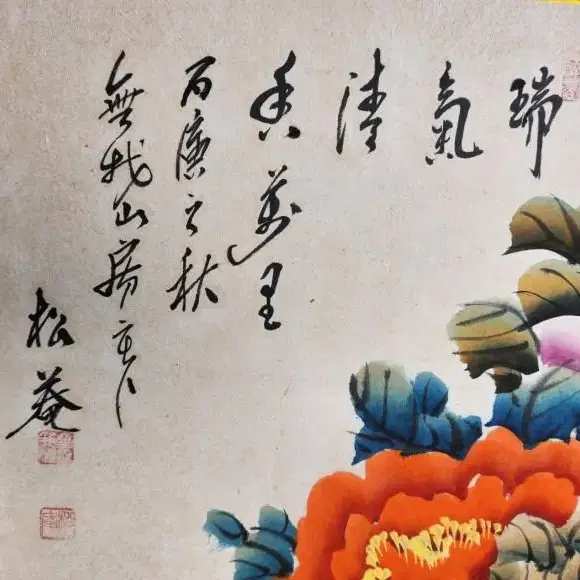 瑞氣清香萬里
丙寅之秋
無我山房主人
松菴